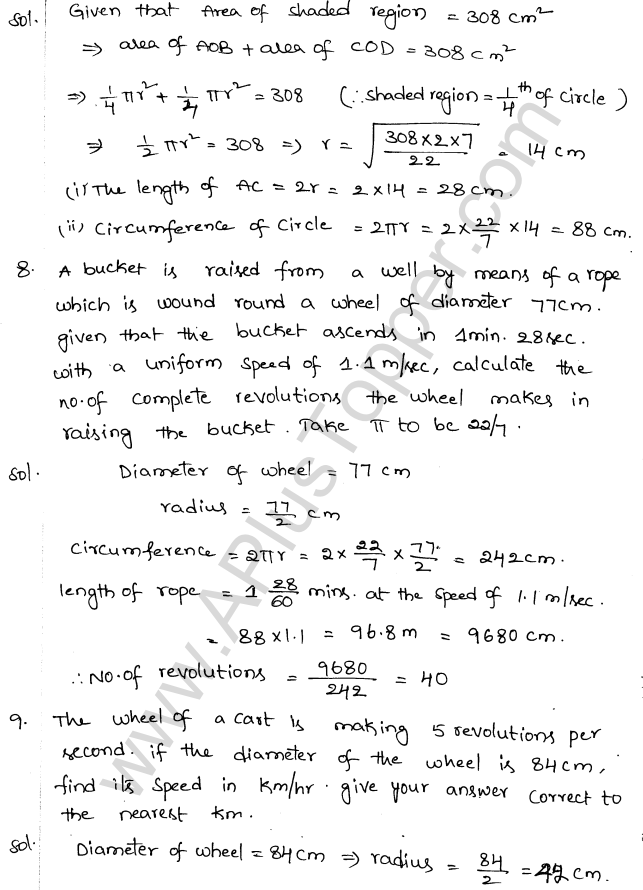 Sol. Given that Area of shaded region = 308 cm²
⇒ area of AOB + area of COD = 308 cm²
⇒ 1/4 πr² + 1/4 πr² = 308 (∵ shaded region = 1/4 th of circle)
⇒ 1/2 πr² = 308 ⇒ r = √(308×2×7/22) = 14 cm
(i) The length of AC = 2r = 2 × 14 = 28 cm.
(ii) Circumference of Circle = 2πr = 2 × 22/7 × 14 = 88 cm.
8. A bucket is raised from a well by means of a rope
which is wound round a wheel of diameter 77cm.
given that the bucket ascends in 1min. 28sec.
with a uniform speed of 1.1 m/sec, calculate the
no. of complete revolutions the wheel makes in
raising the bucket. Take π to be 22/7.
Sol. Diameter of wheel = 77 cm
radius = 77/2 cm
Circumference = 2πr = 2 × 22/7 × 77/2 = 242cm.
length of rope = 1 28/60 mins. at the speed of 1.1 m/sec.
= 88 × 1.1 = 96.8 m = 9680 cm.
∴ No. of revolutions = 9680/242 = 40
9. The wheel of a cart is making 5 revolutions per
second. if the diameter of the wheel is 84cm,
find its speed in Km/hr. give your answer correct to
the nearest km.
Sol. Diameter of wheel = 84 cm ⇒ radius = 84/2 = 42 cm.
www.APlusTopper.com